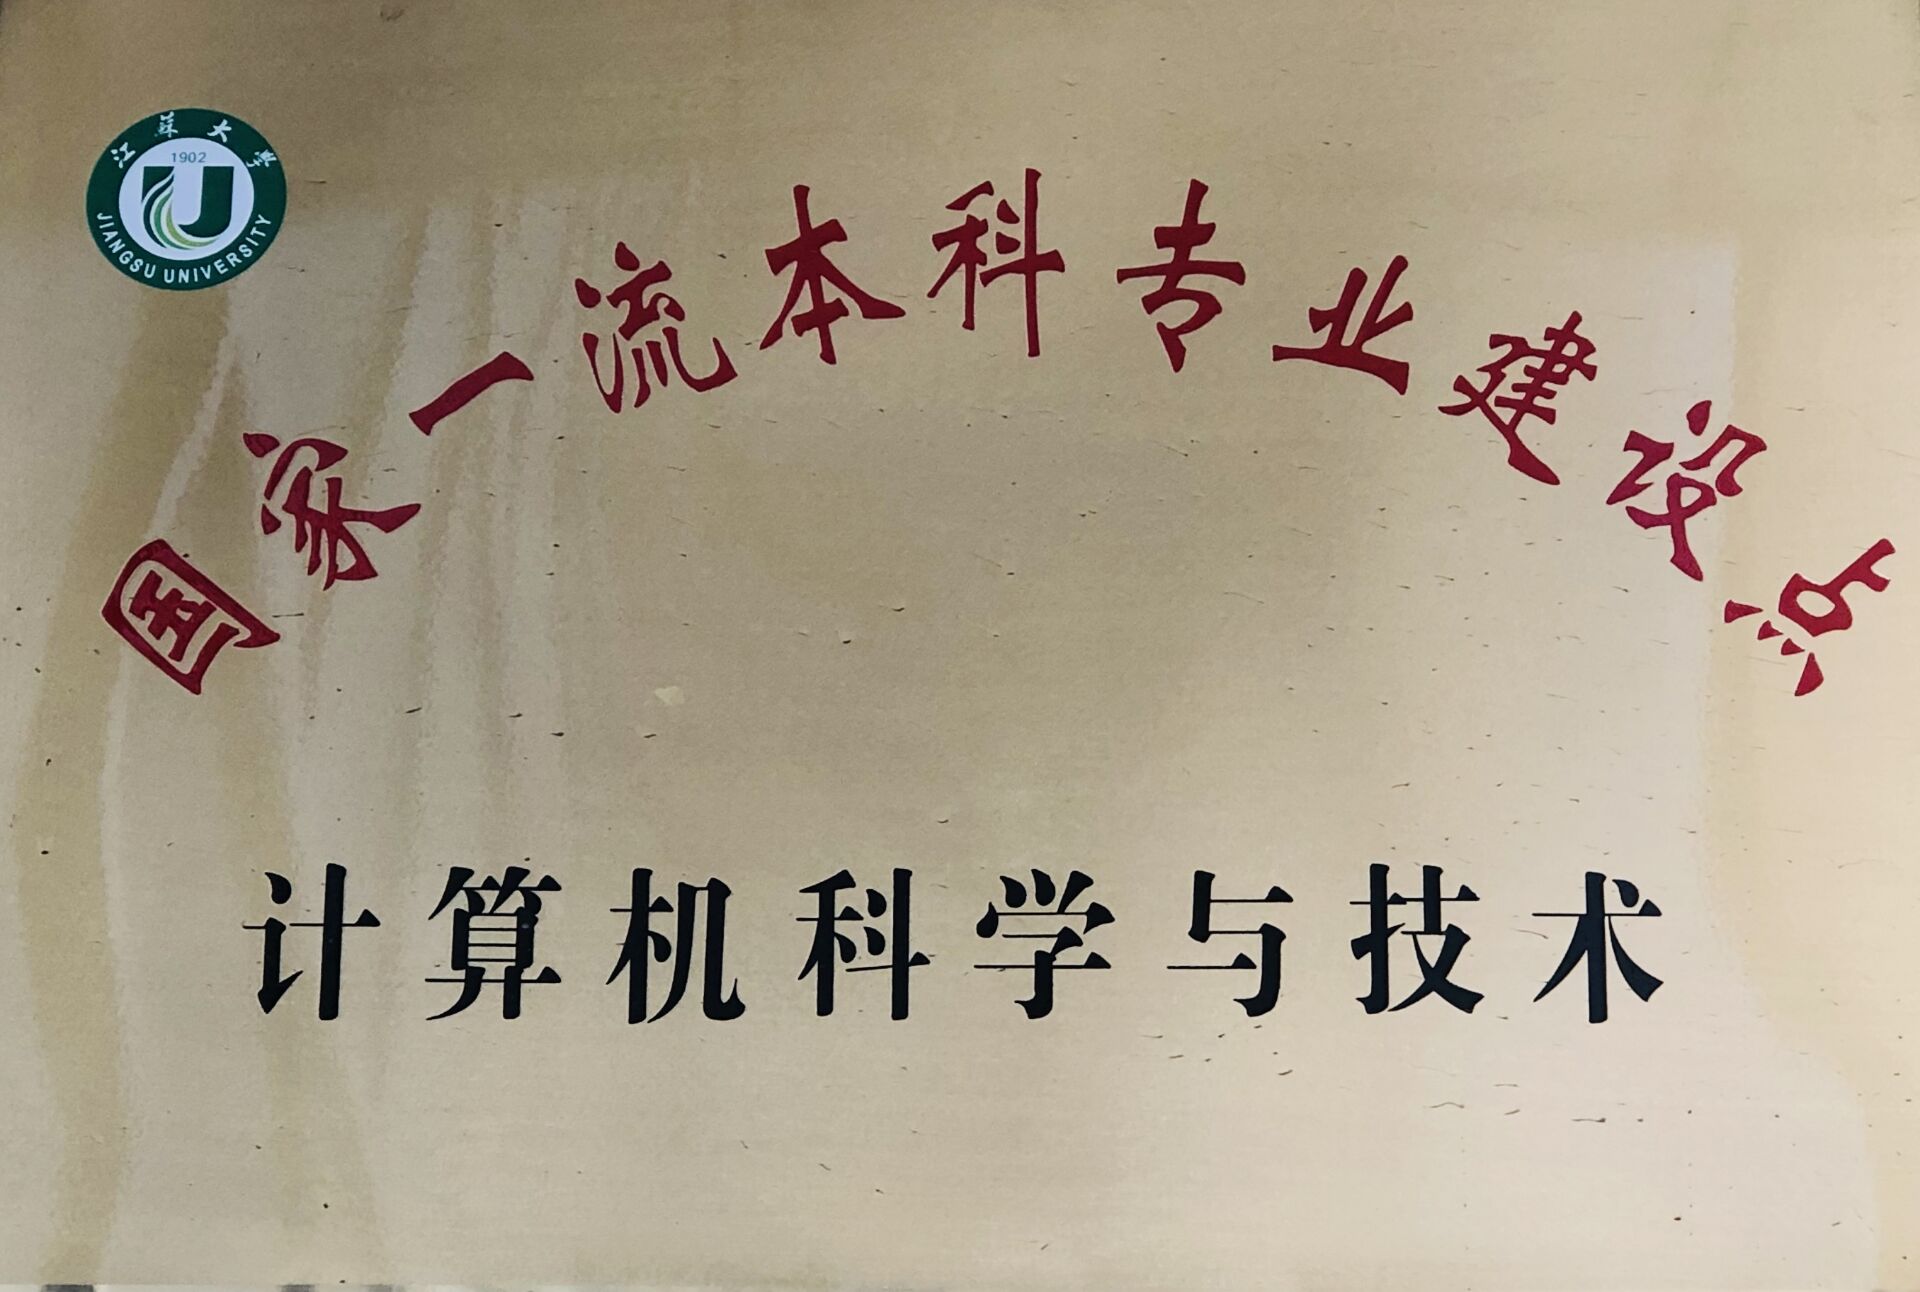 江蘇大學
1902
JIANGSU UNIVERSITY
国家一流本科专业建设点
计算机科学与技术